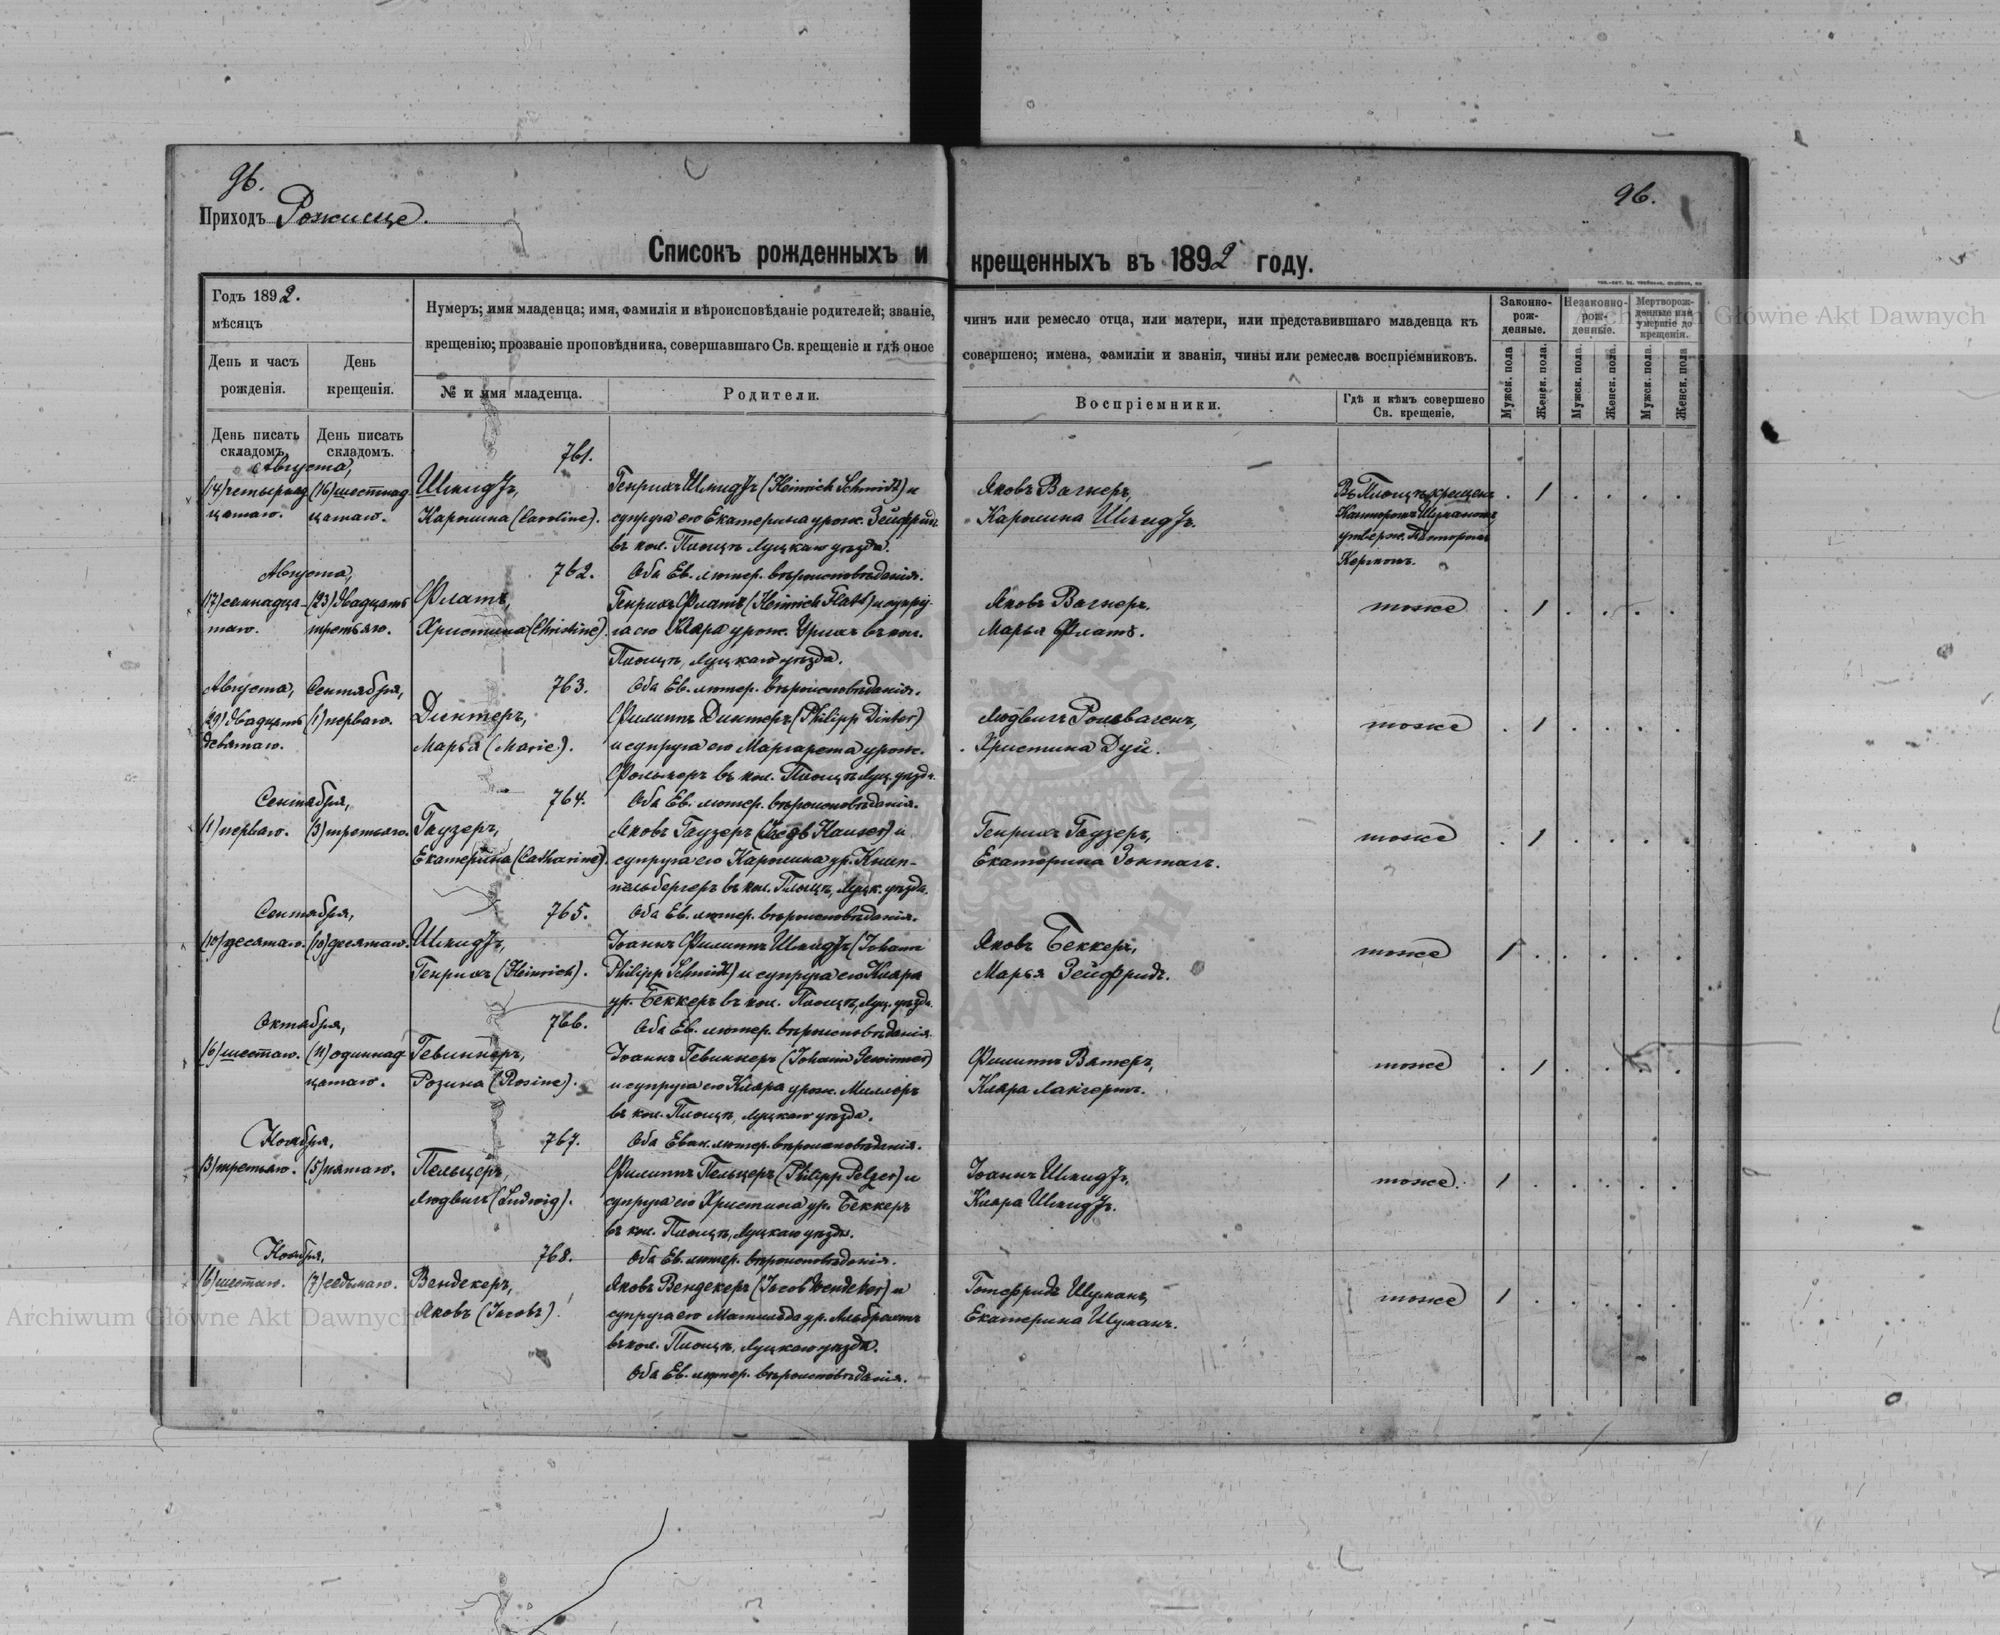 96.
96.
Приходъ Рожище.
Списокъ рожденныхъ и крещенныхъ въ 1892 году.
Годъ 1892.
мѣсяцъ
День и часъ рожденія.
День крещенія.
Нумеръ; имя младенца; имя, фамилія и вѣроисповѣданіе родителей; званіе, чинъ или ремесло отца, или матери, или представившаго младенца къ
крещенію; прозваніе проповѣдника, совершавшаго Св. крещеніе и гдѣ оное совершено; имена, фамиліи и званія, чины или ремесла воспріемниковъ.
№ и имя младенца.
Родители.
Воспріемники.
Гдѣ и кѣмъ совершено Св. крещеніе.
Законно-рож-денные.
Незаконно-рож-денные.
Мертворож-денные или умершіе до крещенія.
Мужск. пола
Женск. пола.
Мужск. пола.
Женск. пола.
Мужск. пола.
Женск. пола
День писать складомъ.
День писать складомъ.
Августа,
761.
(14) четырнад-
цатаго.
(16) шестнад-
цатаго.
Шмидтъ,
Каролина (Caroline).
Генрихъ Шмидтъ (Heinrich Schmidt) и
супруга его Екатерина урож. Зейфридъ
въ кол. Площъ Луцкаго уѣзда.
Оба Ев. лютер. вѣроисповѣданія.
Яковъ Вагнеръ,
Каролина Шмидтъ.
Въ Площъ крещенъ
Канторомъ Шуманомъ,
утверж. Пасторомъ
Керномъ.
1
Августа,
762.
(17) семнадца-
таго.
(23) двадцать
третьяго.
Флатъ,
Христина (Christine).
Генрихъ Флатъ (Heinrich Flath) и супру-
га его Клара урож. Урихъ въ кол.
Площъ, Луцкаго уѣзда.
Оба Ев. лютер. вѣроисповѣданія.
Яковъ Вагнеръ,
Марья Флатъ.
тоже
1
Августа,
Сентября,
763.
(29) двадцать
девятаго.
(1) перваго.
Динтеръ,
Марья (Marie).
Филиппъ Динтеръ (Philipp Dinter)
и супруга его Маргарета урож.
Фолькеръ въ кол. Площъ Луц. уѣзда.
Оба Ев. лютер. вѣроисповѣданія.
Людвигъ Рольвагенъ,
Христина Дуй.
тоже
1
Сентября,
764.
(1) перваго.
(3) третьяго.
Гаузеръ,
Екатерина (Catharine).
Яковъ Гаузеръ (Jacob Hauser) и
супруга его Каролина ур. Книп-
пельбергеръ въ кол. Площъ, Луцк. уѣзда.
Оба Ев. лютер. вѣроисповѣданія.
Генрихъ Гаузеръ,
Екатерина Зонтагъ.
тоже
1
Сентября,
765.
(10) десятаго.
(10) десятаго.
Шмидтъ,
Генрихъ (Heinrich).
Іоаннъ Филиппъ Шмидтъ (Johann
Philipp Schmidt) и супруга его Клара
ур. Беккеръ въ кол. Площъ, Луц. уѣзда.
Оба Ев. лютер. вѣроисповѣданія.
Яковъ Беккеръ,
Марья Зейфридъ.
тоже
1
Октября,
766.
(6) шестаго.
(11) одиннад-
цатаго.
Гевиннеръ,
Розина (Rosine).
Іоаннъ Гевиннеръ (Johann Gewinner)
и супруга его Клара урож. Миллеръ
въ кол. Площъ, Луцкаго уѣзда.
Оба Еван. лютер. вѣроисповѣданія.
Филиппъ Ветеръ,
Клара
тоже
1
Ноября,
767.
(3) третьяго.
(5) пятаго.
Пельцеръ,
Людвигъ (Ludwig).
Филиппъ Пельцеръ (Philipp Pelzer) и
супруга его Христина ур. Беккеръ
въ кол. Площъ, Луцкаго уѣзда.
Оба Ев. лютер. вѣроисповѣданія.
Іоаннъ Шмидтъ,
Клара Шмидтъ.
тоже.
1
Ноября,
768.
(6) шестаго.
(7) седьмаго.
Вендекеръ,
Яковъ (Jacob).
Яковъ Вендекеръ (Jacob Wendeker) и
супруга его Матильда ур. Альбрехтъ
въ кол. Площъ, Луцкаго уѣзда.
Оба Ев. лютер. вѣроисповѣданія.
Готфридъ Шуманъ,
Екатерина Шуманъ.
тоже
1
Archiwum Główne Akt Dawnych
Archiwum Główne Akt Dawnych